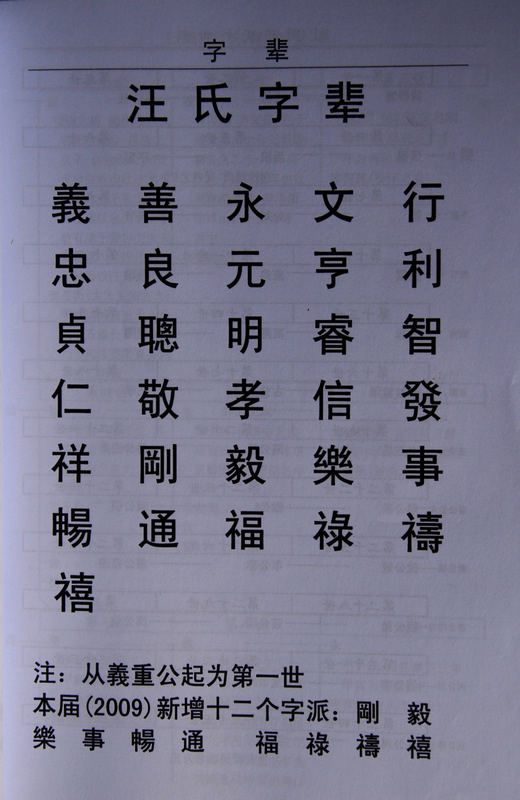 字 輩
汪氏字輩
義 善 永 文 行
忠 良 元 亨 利
貞 聰 明 睿 智
仁 敬 孝 信 發
祥 剛 毅 樂 事
暢 通 福 祿 禱
禧
注：从義重公起为第一世
本届(2009)新增十二个字派：剛 毅
樂 事 暢 通 福 祿 禱 禧